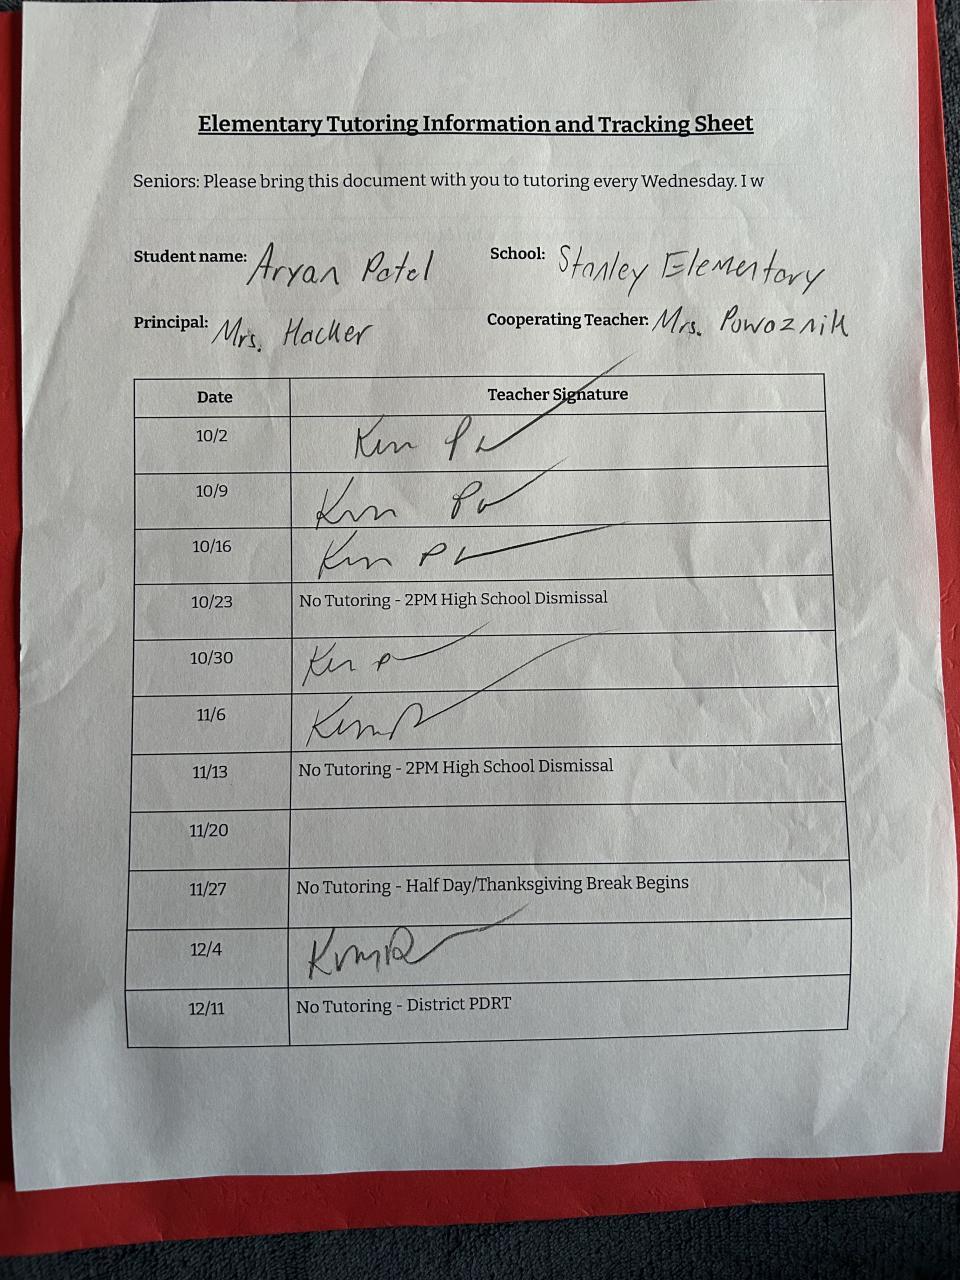 Elementary Tutoring Information and Tracking Sheet
Seniors: Please bring this document with you to tutoring every Wednesday. I w
Student name: Aryan Patel School: Stanley Elementary
Principal: Mrs. Hacker Cooperating Teacher: Mrs. Powoznik
Date Teacher Signature
10/2 Kim P
10/9 Kim P
10/16 Kim P
10/23 No Tutoring - 2PM High School Dismissal
10/30 Kim P
11/6 Kim P
11/13 No Tutoring - 2PM High School Dismissal
11/20
11/27 No Tutoring - Half Day/Thanksgiving Break Begins
12/4 Kim P
12/11 No Tutoring - District PDRT